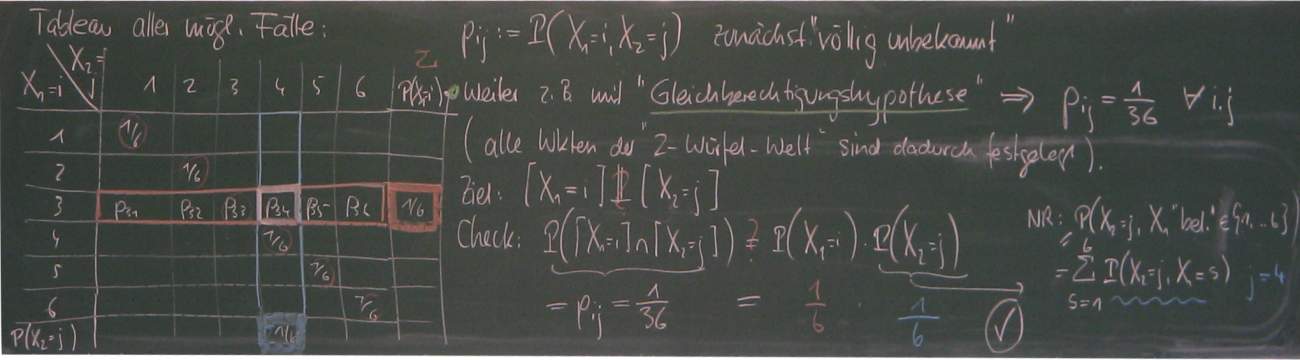 Tableau aller mögl. Fälle:
X₂=j
X₁=i 1 2 3 4 5 6 P(X₁=i)
Σ
1 1/6
2 1/6
3 p₃₁ p₃₂ p₃₃ p₃₄ p₃₅ p₃₆ 1/6
4 1/6
5 1/6
6 1/6
P(X₂=j) 1/6
pij := P(X₁=i, X₂=j) zunächst "völlig unbekannt"
Weiter z.B. mit "Gleichberechtigungshypothese" ⇒ pij = 1/36 ∀ i,j
(alle Wkten der "2-Würfel-Welt" sind dadurch festgelegt).
Ziel: [X₁=i] ⫫ [X₂=j]
Check: P([X₁=i]∩[X₂=j]) ?= P(X₁=i) · P(X₂=j)
= pij = 1/36 = 1/6 · 1/6 ✓
NR: P(X₂=j, X₁ "bel." ∈{1...6})
= ∑ₛ₌₁⁶ P(X₂=j, X₁=s) j=4